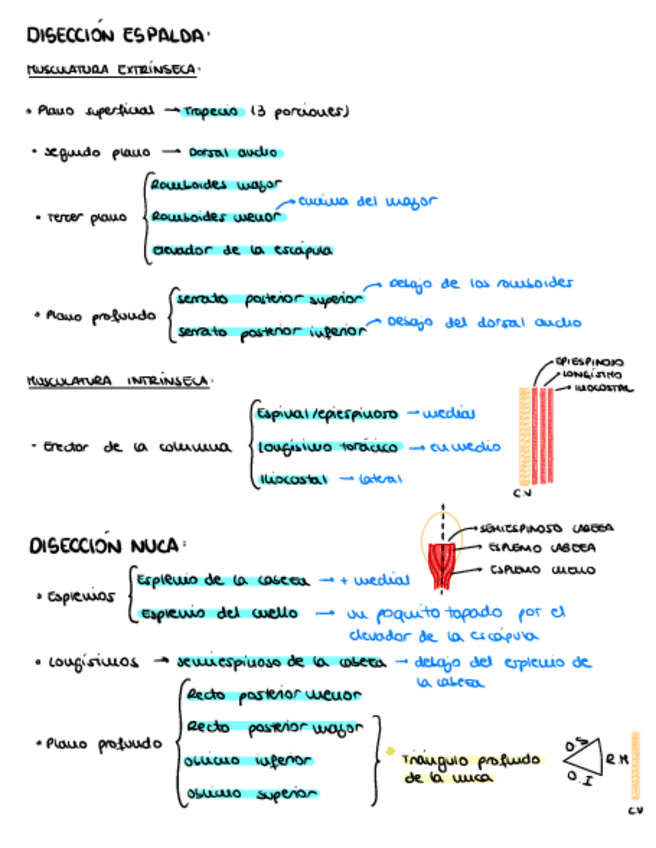 DISECCIÓN ESPALDA·
MUSCULATURA EXTRÍNSECA·
• Plano superficial → Trapecio (3 porciones)
• segundo plano → Dorsal ancho
Romboides mayor
• Tercer plano Romboides menor encima del mayor
elevador de la escápula
serrato posterior superior Debajo de los romboides
• Plano profundo
serrato posterior inferior Debajo del dorsal ancho
MUSCULATURA INTRÍNSECA·
EPIESPINOSO
LONGÍSIMO
ILIOCOSTAL
Espinal/epiespinoso → medial
- Erector de la columna Longísimo torácico → en medio
Iliocostal → lateral
C.V
DISECCIÓN NUCA:
SEMIESPINOSO CABEZA
ESPLENIO CABEZA
ESPLENIO CUELLO
Esplenio de la cabeza → + medial
• Esplenios
Esplenio del cuello → un poquito tapado por el
elevador de la escápula
• Longísimos → semiespinoso de la cabeza → debajo del esplenio de
la cabeza
Recto posterior menor
Recto posterior mayor
• Plano profundo
oblicuo inferior
oblicuo superior
* Triángulo profundo
de la nuca
O.S
R.M
O.I
C.V